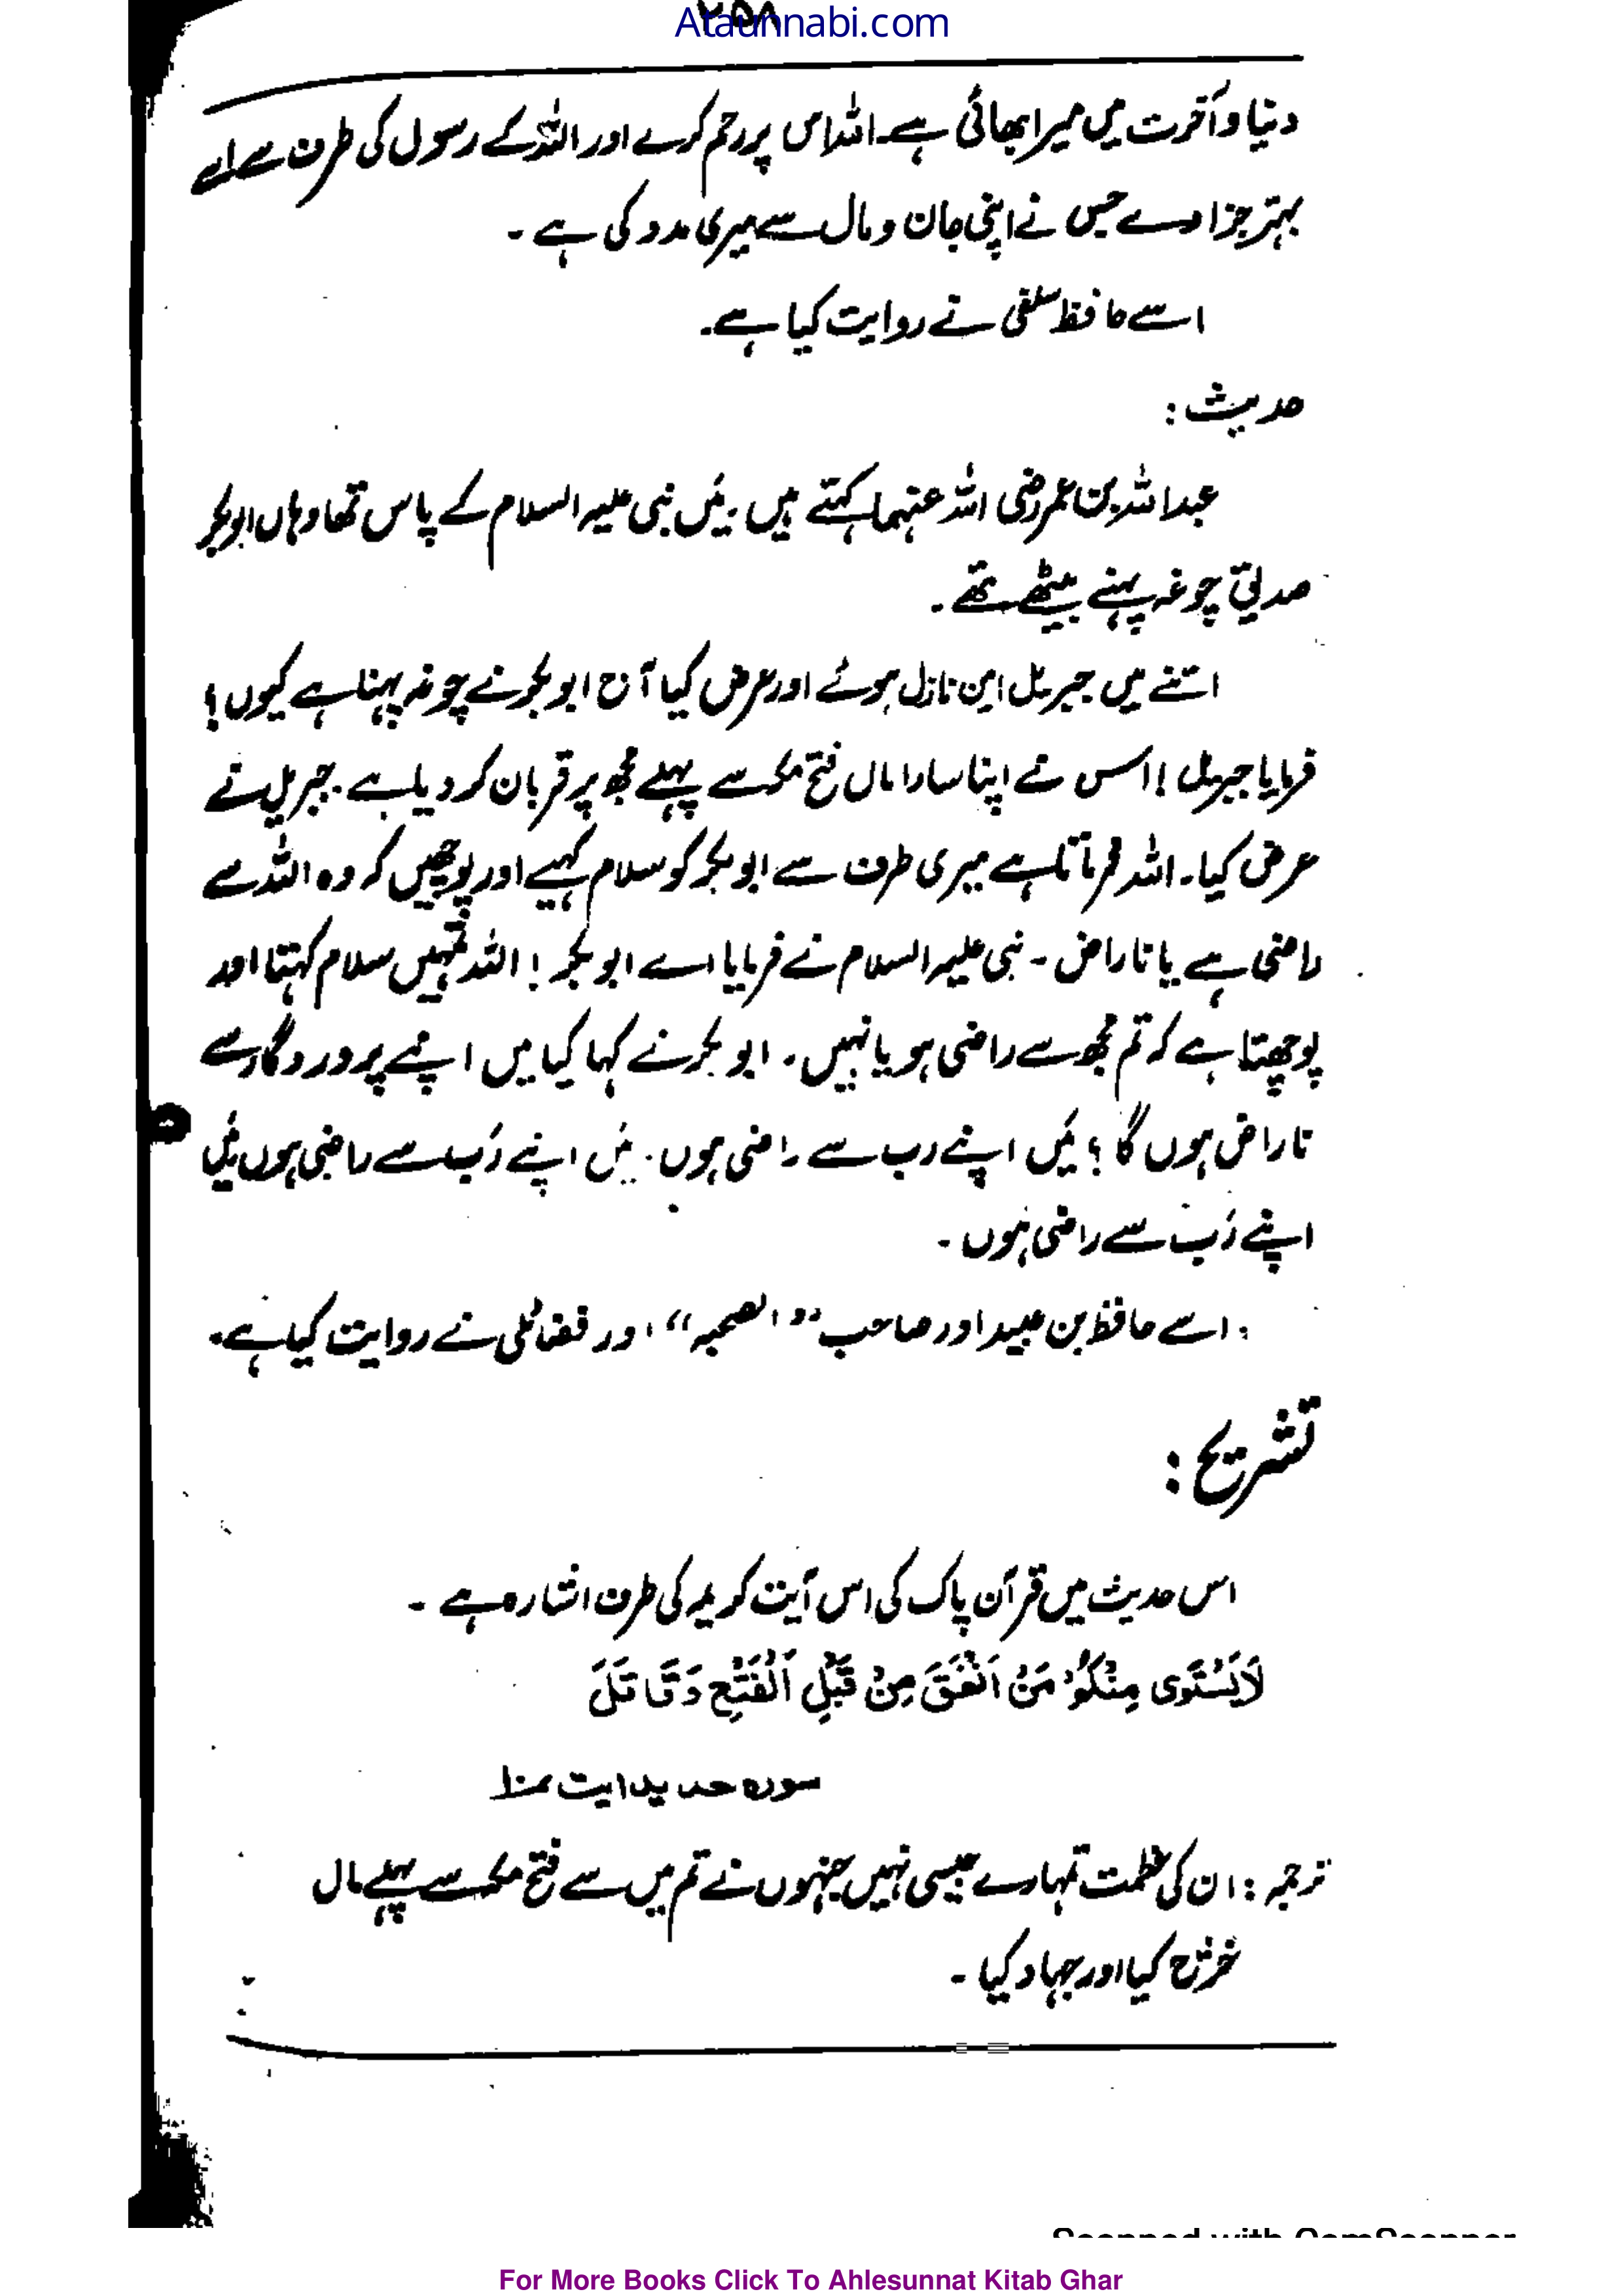 ۲۵۸
Ataunnabi.com
دنیا و آخرت میں میرا بھائی ہے۔ اللہ اس پر رحم کرے اور اللہ کے رسول کی طرف سے اسے
بہتر جزا دے جس نے اپنی جان و مال سے میری مدد کی ہے۔
اسے حافظ سلفی نے روایت کیا ہے۔
حدیث:
عبداللہ بن عمر رضی اللہ عنہما کہتے ہیں۔ میں نبی علیہ السلام کے پاس تھا وہاں ابو بکر
صدیق چوغہ پہنے بیٹھے تھے۔
اتنے میں جبریل امین نازل ہوئے اور عرض کیا آج ابوبکر نے چوغہ پہنا ہے کیوں؟
فرمایا جبریل! اس نے اپنا سارا مال فتح مکہ سے پہلے مجھ پر قربان کر دیا ہے۔ جبریل نے
عرض کیا۔ اللہ فرماتا ہے میری طرف سے ابوبکر کو سلام کہیے اور پوچھیں کہ وہ اللہ سے
راضی ہے یا ناراض۔ نبی علیہ السلام نے فرمایا اے ابوبکر! اللہ تمہیں سلام کہتا اور
پوچھتا ہے کہ تم مجھ سے راضی ہو یا نہیں۔ ابوبکر نے کہا کیا میں اپنے پروردگار سے
ناراض ہوں گا؟ میں اپنے رب سے راضی ہوں۔ میں اپنے رَب سے راضی ہوں میں
اپنے رَب سے راضی ہوں۔
اسے حافظ بن عبید اور صاحب "الصحبہ" اور فضائلی نے روایت کیا ہے۔
تشریح:
اس حدیث میں قرآن پاک کی اس آیت کریمہ کی طرف اشارہ ہے۔
لَا یَسْتَوِی مِنْکُمْ مَنْ اَنْفَقَ مِنْ قَبْلِ الْفَتْحِ وَقَاتَلَ
سورہ حدید ایت نمبر ۱۰
ترجمہ: ان کی عظمت تمہارے جیسی نہیں جنہوں نے تم میں سے فتح مکہ سے پہلے مال
خرچ کیا اور جہاد کیا۔
Scanned with CamScanner
For More Books Click To Ahlesunnat Kitab Ghar